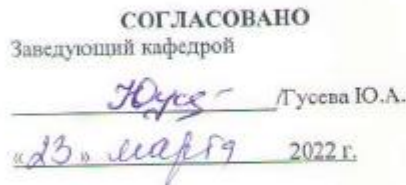 СОГЛАСОВАНО
Заведующий кафедрой
/Гусева Ю.А.
«23» марта 2022 г.